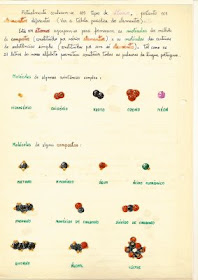 Atualmente conhecem-se 105 tipos de átomos, pertencentes a
elementos diferentes. (Ver a Tabela periódica dos elementos).
Os átomos agrupam-se para formarem as moléculas dos milhões
de compostos (constituídas por vários elementos) e as moléculas das centenas
de substâncias simples (constituídas por um só elemento). Tal como as
23 letras do nosso alfabeto permitem construir todas as palavras da língua portuguesa.
Moléculas de algumas substâncias simples:
HIDROGÉNIO
OXIGÉNIO
AZOTO
CLORO
HÉLIO
Moléculas de alguns compostos:
METANO
AMONÍACO
ÁGUA
ÁCIDO CLORÍDRICO
PROPANO
MONÓXIDO DE CARBONO
DIÓXIDO DE CARBONO
BUTANO
ÁLCOOL